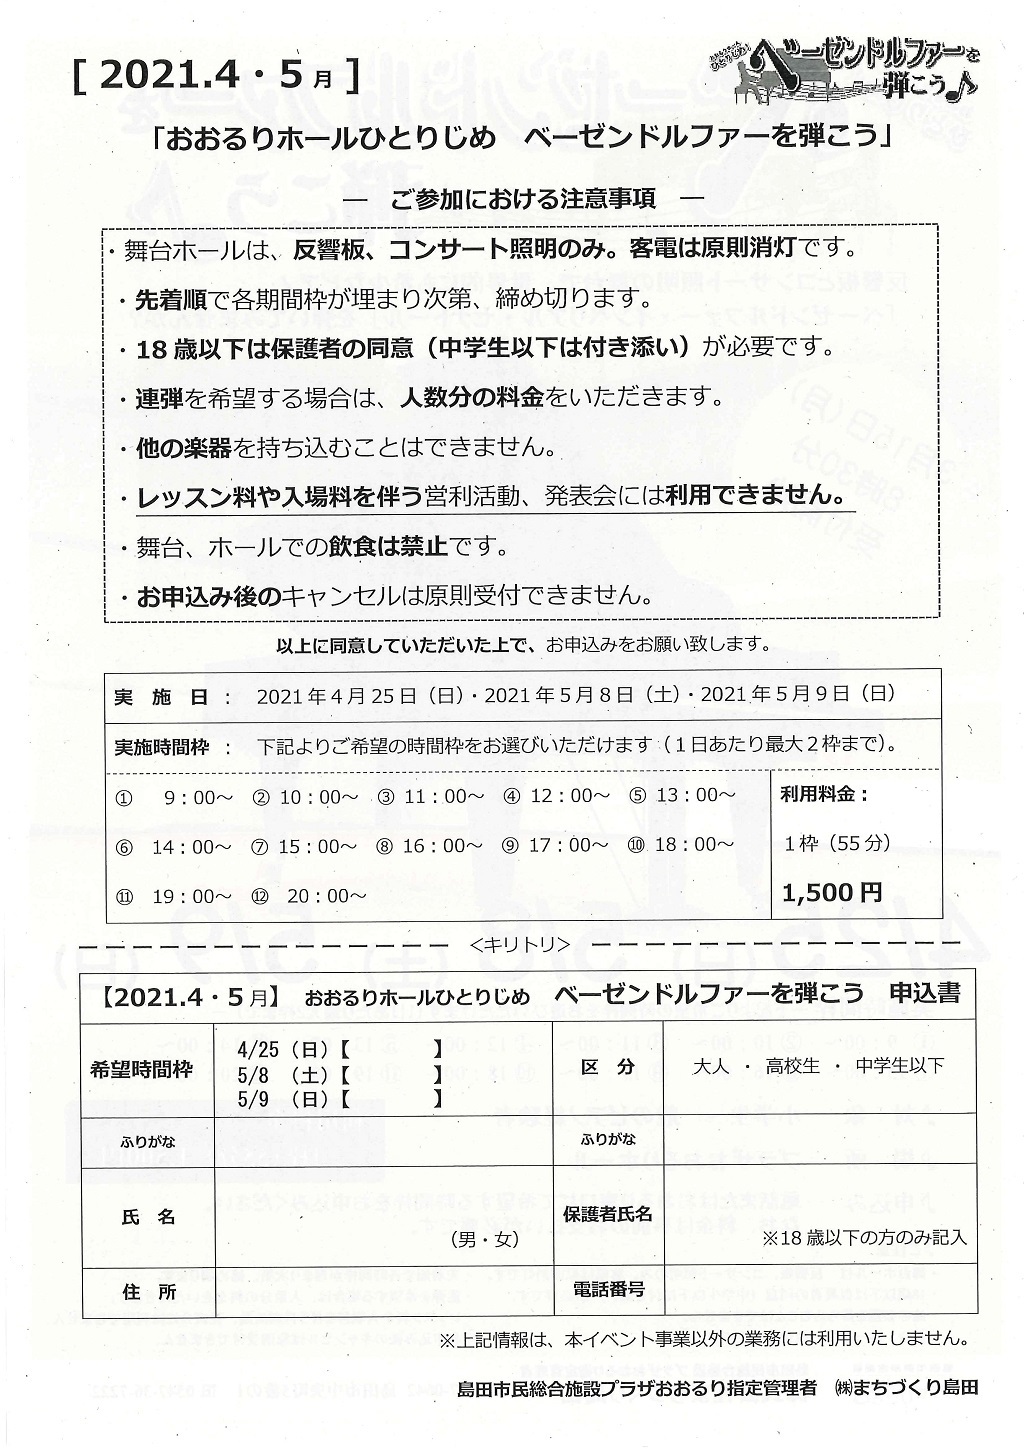 [ 2021.4・5月 ]
ベーゼンドルファーを
弾こう♪
「おおるりホールひとりじめ　ベーゼンドルファーを弾こう」
― ご参加における注意事項 ―
・舞台ホールは、反響板、コンサート照明のみ。客電は原則消灯です。
・先着順で各期間枠が埋まり次第、締め切ります。
・18歳以下は保護者の同意（中学生以下は付き添い）が必要です。
・連弾を希望する場合は、人数分の料金をいただきます。
・他の楽器を持ち込むことはできません。
・レッスン料や入場料を伴う営利活動、発表会には利用できません。
・舞台、ホールでの飲食は禁止です。
・お申込み後のキャンセルは原則受付できません。
以上に同意していただいた上で、お申込みをお願い致します。
実　施　日 ： 2021年4月25日（日）・2021年5月8日（土）・2021年5月9日（日）
実施時間枠 ： 下記よりご希望の時間枠をお選びいただけます（１日あたり最大２枠まで）。
① 9：00～ ② 10：00～ ③ 11：00～ ④ 12：00～ ⑤ 13：00～
⑥ 14：00～ ⑦ 15：00～ ⑧ 16：00～ ⑨ 17：00～ ⑩ 18：00～
⑪ 19：00～ ⑫ 20：00～
利用料金：
１枠（55分）
1,500円
＜キリトリ＞
【2021.4・5月】 おおるりホールひとりじめ　ベーゼンドルファーを弾こう　申込書
希望時間枠
4/25（日）【　　　　】
5/8　（土）【　　　　】
5/9　（日）【　　　　】
区　分　大人 ・ 高校生 ・ 中学生以下
ふりがな　ふりがな
氏　名　（男・女）
保護者氏名　※18歳以下の方のみ記入
住　所　電話番号
※上記情報は、本イベント事業以外の業務には利用いたしません。
島田市民総合施設プラザおおるり指定管理者　㈱まちづくり島田